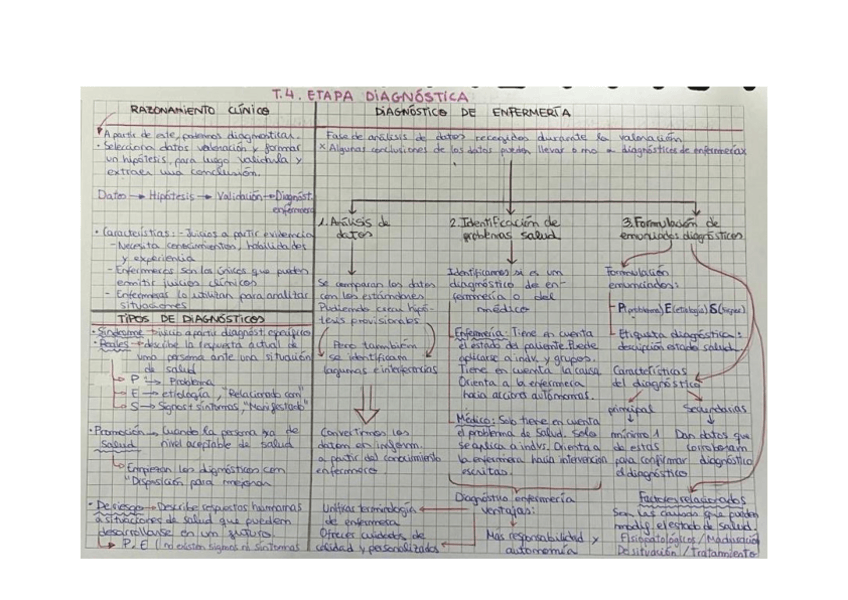 T.4. ETAPA DIAGNÓSTICA
RAZONAMIENTO CLÍNICO
A partir de este, podemos diagnosticar.
• Selecciona datos valoración y formar
un hipótesis, para luego validarla y
extraer una conclusión.
Datos → Hipótesis → Validación → Diagnóst.
enfermero
• Características: - Juicios a partir evidencia
- Necesita conocimientos, habilidades
y experiencia
- Enfermeros son los únicos que pueden
emitir juicios clínicos
- Enfermeras lo utilizan para analizar
situaciones
TIPOS DE DIAGNÓSTICOS
• Síndrome → juicio a partir diagnóst. específico
• Reales → describe la respuesta actual de
una persona ante una situación
de salud
P → Problema
E → etiología, "Relacionado con"
S → Signos + síntomas, "Manifestado"
• Promoción → Cuando la persona va de
Salud nivel aceptable de salud
Empiezan los diagnósticos con
"Disposición para mejorar
• De riesgo → Describe respuestas humanas
a situaciones de salud que pueden
desarrollarse en un futuro.
P. E (no existen signos ni síntomas
DIAGNÓSTICO DE ENFERMERÍA
Fase de análisis de datos recogidos durante la valoración
* Algunas conclusiones de los datos pueden llevar o no a diagnósticos de enfermería
1. Análisis de
datos
Se comparan los datos
con los estándares
Pudiendo crear hipó-
tesis provisionales.
Pero también
se identifican
lagunas e
Convertimos los
datos en inform.
a partir del conocimiento
enfermero
2. Identificación de
problemas salud.
Identificamos si es un
diagnóstico de en-
fermería o del
médico
Enfermería: Tiene en cuenta
el estado del paciente. Puede
aplicarse a indv. y grupos.
Tiene en cuenta la causa
Orienta a la enfermera
hacia acciones autónomas.
Médico: Solo tiene en cuenta
el problema de salud. Solo
se aplica a indv. Orienta a
la enfermera hacia intervención
escritas.
Diagnóstico enfermería
ventajas:
Unificar terminología
de enfermera
Ofrecer cuidados de
calidad y personalizados
Más responsabilidad y
autonomía
3. Formulación de
enunciados diagnósticos
Formulación
enunciados:
- P(problema) E(etiología) S
- Etiqueta diagnóstica:
descripción estado salud.
Características
del diagnóstico
principal
mínimo 1
de estas
para confirmar
el diagnóstico
Secundarias
Dan datos que
corroboran
diagnóstico
Factores relacionados
Son las causas que pueden
modif. el estado de salud.
Fisiopatológicos / Maduración
De situación / Tratamiento